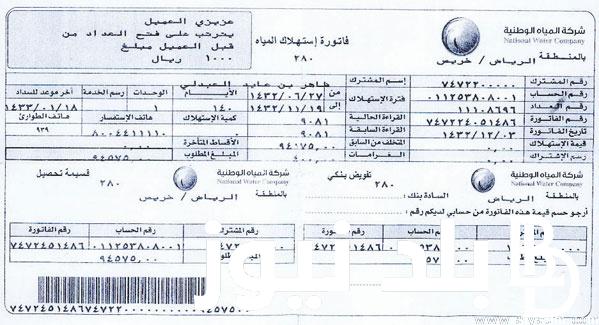 شركة المياه الوطنية
National Water Company
بالمنطقة الرياض / خريص
فاتورة إستهلاك المياه
٢٨٠
عزيزي العميل
يترتب على فتح العداد من
قبل العميل مبلغ
١٠٠٠ ريال
رقم المشترك ٧٤٧٢٢٠٠٠٠٠ إسم المشترك
رقم الحساب ٠١١٢٥٣٨٠٨٠٠١ فترة الإستهلاك من ١٤٣٢/٠٦/٢٧ الأيام الوحدات رسم الخدمة آخر موعد للسداد
رقم العداد ١١١٠٨٦٩٦ إلى ١٤٣٢/١١/١٩ ١٤٠ ١ ١٤٣٣/٠١/١٨
رقم الفاتورة ٧٤٧٢٢٤٠٥١٤٨٦ القراءة الحالية ٩٠٨١ كمية الإستهلاك هاتف الإستفسار هاتف الطوارئ
تاريخ الفاتورة ١٤٣٢/١٢/٠٣ القراءة السابقة ٩٠٨١ ٨٠٠٤٤١١١١٠ ٩٣٩
قيمة الإستهلاك المتخلف من السابق ٩٤١٧٥,٠٠ الأقساط المتأخرة
رسم الإشتراك الغرامات ٤٠٠,٠٠ المبلغ المطلوب ٩٤٥٧٥,٠٠
شركة المياه الوطنية
National Water Company
تفويض بنكي
٢٨٠
بالمنطقة الرياض / خريص
السادة بنك:
أرجو حسم قيمة هذه الفاتورة من حسابي لديكم رقم:
شركة المياه الوطنية
National Water Company
قسيمة تحصيل
٢٨٠
بالمنطقة الرياض / خريص
رقم الحساب رقم الفاتورة
رقم المشترك رقم الحساب رقم الفاتورة
٠١١٢٥٣٨٠٨٠٠١ ٧٤٧٢٢٤٠٥١٤٨٦
٩٤٥٧٥,٠٠
بلد نيوز